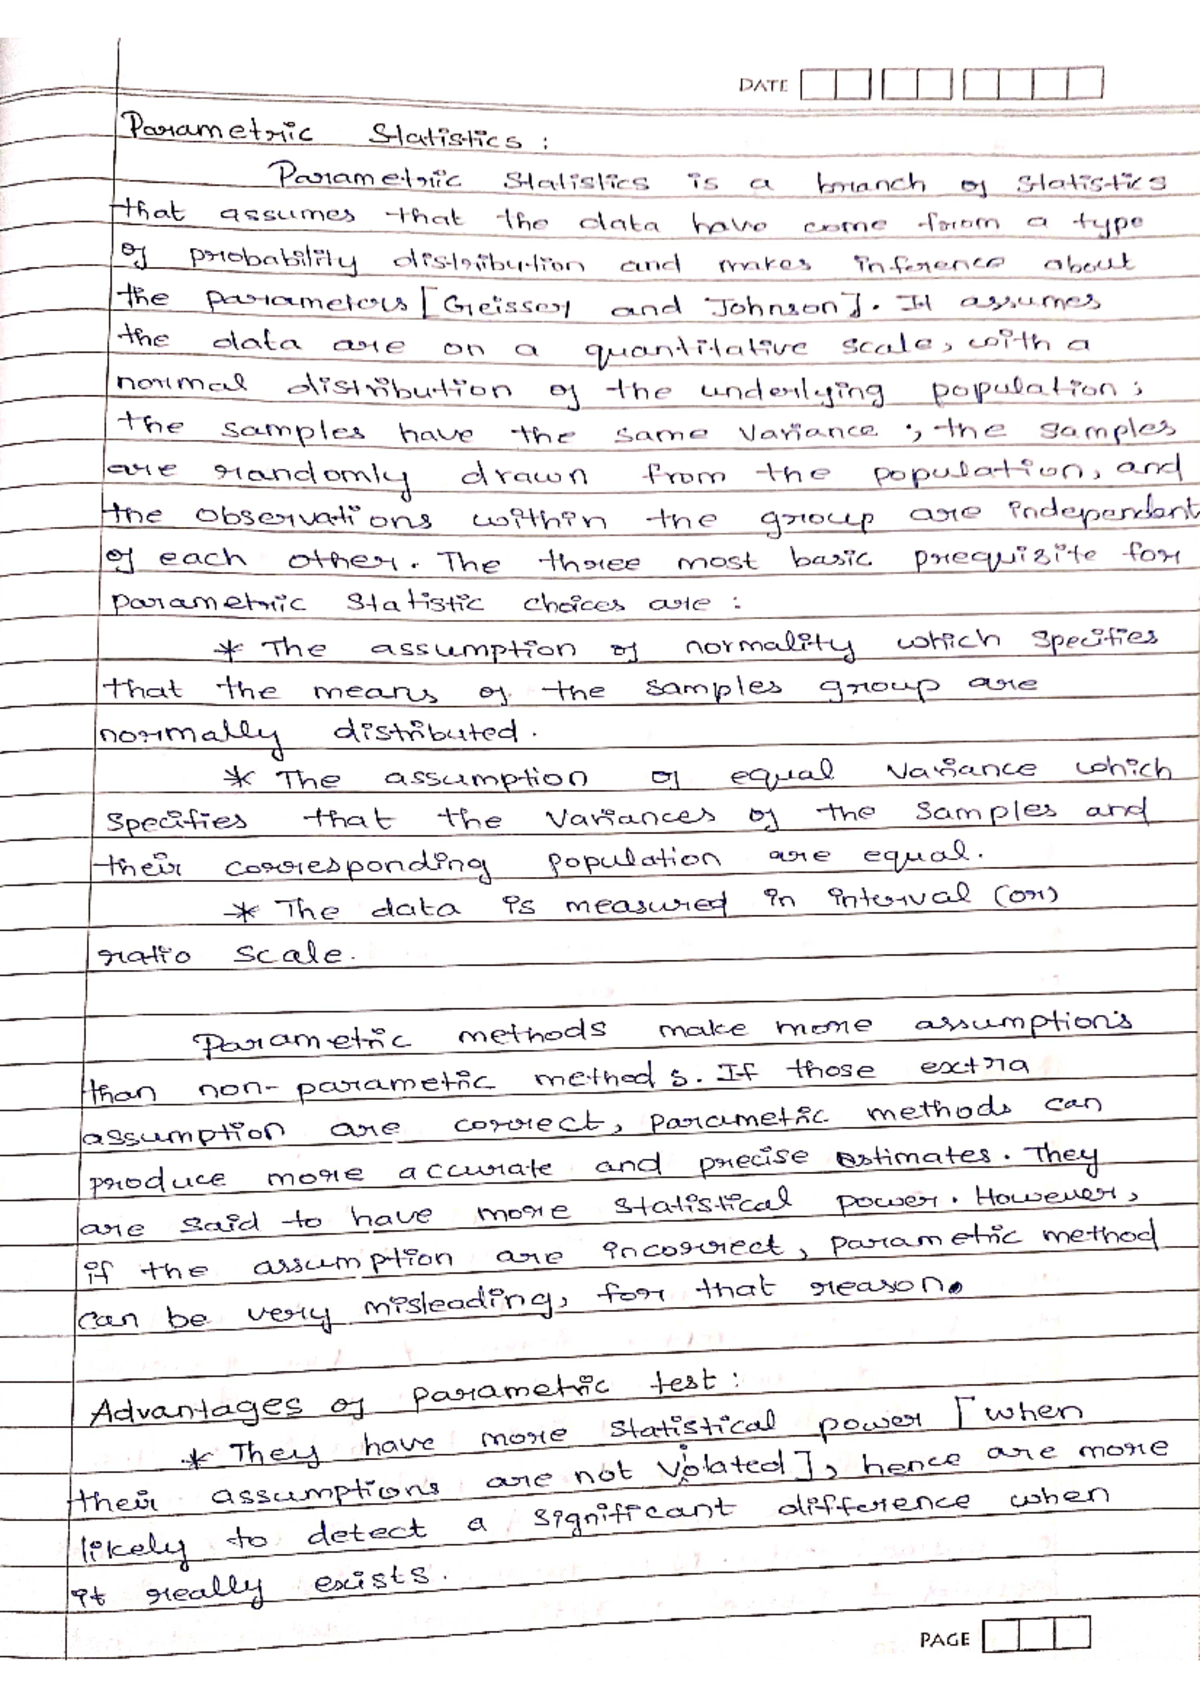 DATE
Parametric Statistics :
Parametric Statistics is a branch of statistics
that assumes that the data have come from a type
of probability distribution and makes inference about
the parameters [Geisser and Johnson]. It assumes
the data are on a quantitative scale, with a
normal distribution of the underlying population;
the samples have the same variance ; the samples
are randomly drawn from the population, and
the observations within the group are independent
of each other. The three most basic prequisite for
parametric statistic choices are :
* The assumption of normality which specifies
that the means of the samples group are
normally distributed.
* The assumption of equal variance which
specifies that the variances of the samples and
their corresponding population are equal.
* The data is measured in interval (or)
ratio scale.
Parametric methods make more assumptions
than non-parametric methods. If those extra
assumption are correct, parametric methods can
produce more accurate and precise estimates. They
are said to have more statistical power. However,
if the assumption are incorrect, parametric method
can be very misleading, for that reason.
Advantages of parametric test :
* They have more statistical power [when
their assumptions are not violated], hence are more
likely to detect a significant difference when
it really exists.
PAGE